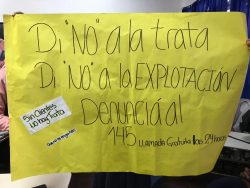 Di "NO" a la trata
Di "NO" a la EXPLOTACIÓN
Denunciá al
145 LLamada Gratuita las 24 horas
Sin Clientes
no hay Trata